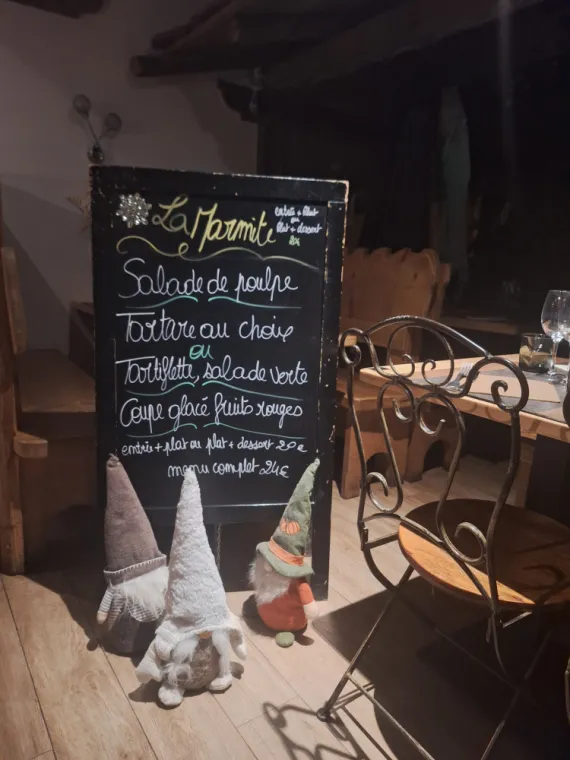 La Marmite
entrée + plat
ou
plat + dessert
Salade de poulpe
Tartare au choix
ou
Tartiflette, salade verte
Coupe glacé fruits rouges
entrée + plat ou plat + dessert 20€
menu complet 24€